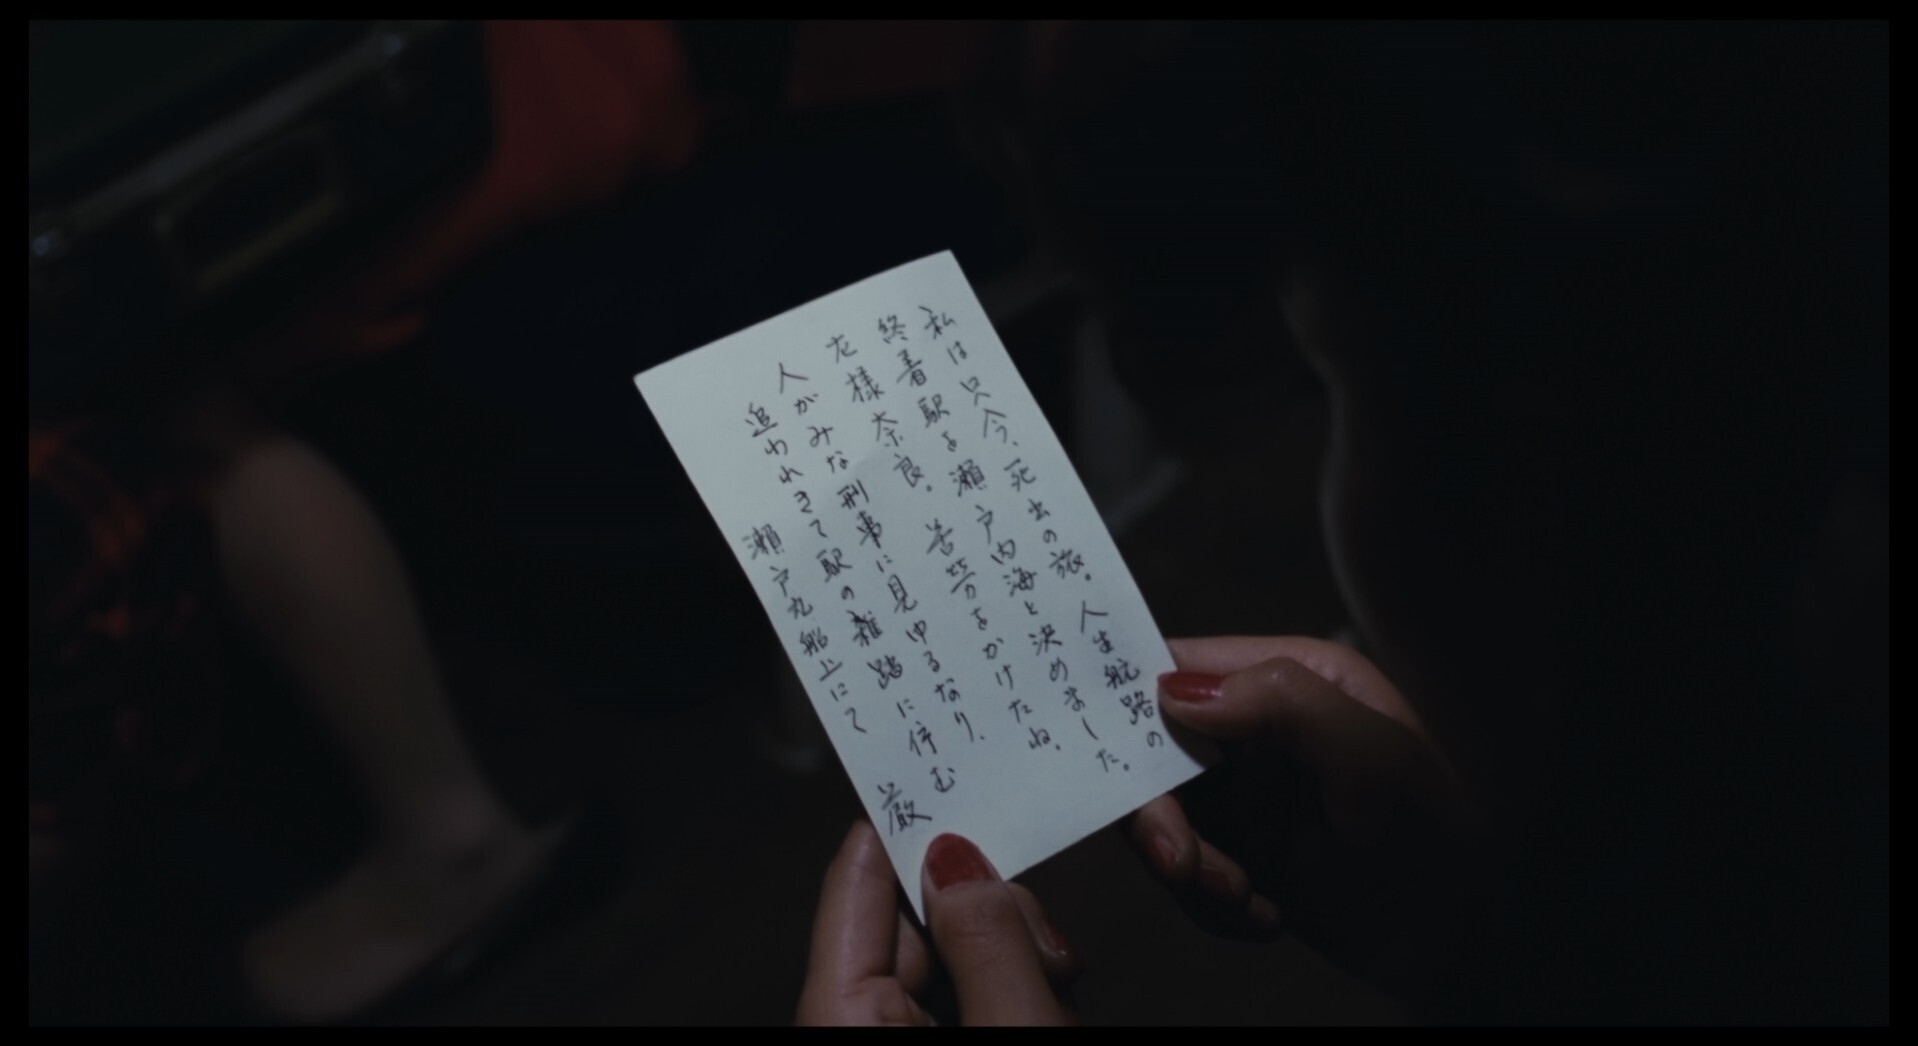 私は只今、死出の旅。人生航路の
終着駅を瀬戸内海と決めました。
左様奈良。苦労をかけたね。
人がみな刑事に見ゆるなり、
追われきて駅の雑踏に佇む
瀬戸丸船上にて 厳